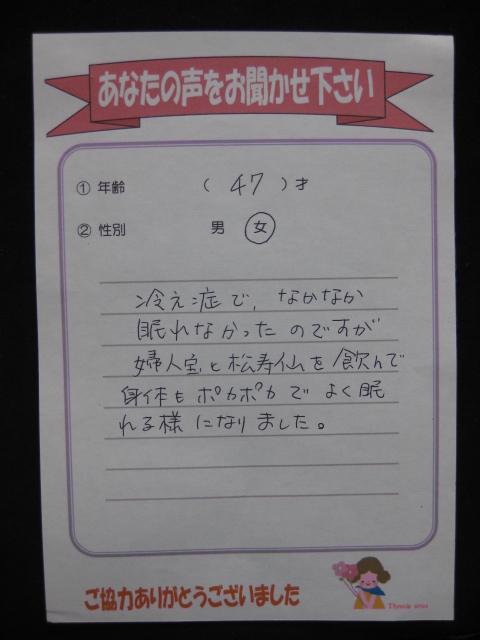 あなたの声をお聞かせ下さい
① 年齢 ( 47 ) 才
② 性別 男 女
冷え症で、なかなか
眠れなかったのですが
婦人宝と松寿仙を飲んで
身体もポカポカでよく眠
れる様になりました。
ご協力ありがとうございました